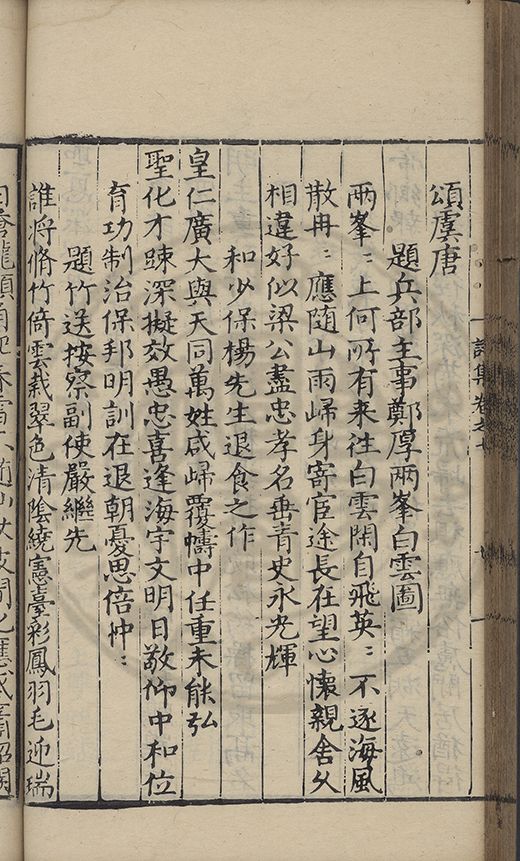 頌虞唐
題兵部主事鄭厚兩峯白雲圖
兩峯〻上何所有来往白雲閑自飛英〻不逐海風
散冉〻應随山雨歸身寄宦途長在望心懷親舍久
相違好似梁公盡忠孝名垂青史永光輝
和少保楊先生退食之作
皇仁廣大與天同萬姓咸歸覆幬中任重未能弘
聖化才踈深擬效愚忠喜逢海宇文明日敬仰中和位
育功制治保邦明訓在退朝憂思倍忡〻
題竹送按察副使嚴繼先
誰将脩竹倚雲栽翠色清陰繞憲臺彩鳳羽毛迎瑞
詩集卷之七